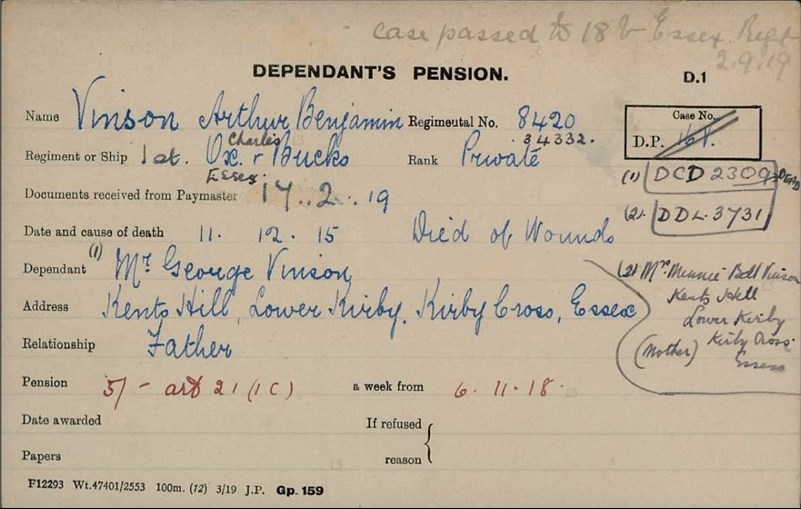 case passed to 18 b Essex Regt
2.9.19
DEPENDANT'S PENSION.
D.1
Name Vinson Arthur Benjamin Regimental No. 8420
Charles 34332.
Case No.
D.P. 168.
Regiment or Ship 1st. Ox. & Bucks Rank Private
Essex
(1) DCD 2309 DEAD
Documents received from Paymaster 17..2..19
(2) DDL.3731
Date and cause of death 11. 12. 15 Died of Wounds
Dependant (1) Mr. George Vinson
Address Kents Hill, Lower Kirby, Kirby Cross, Essex
Relationship Father
(2) Mrs Minnie Bell Vinson
Kents Hill
Lower Kirby
Kirby Cross
(Mother) Essex
Pension 5/- art 21 (1C) a week from 6.11.18.
Date awarded
If refused
Papers
reason
F12293 Wt.47401/2553 100m. (12) 3/19 J.P. Gp.159